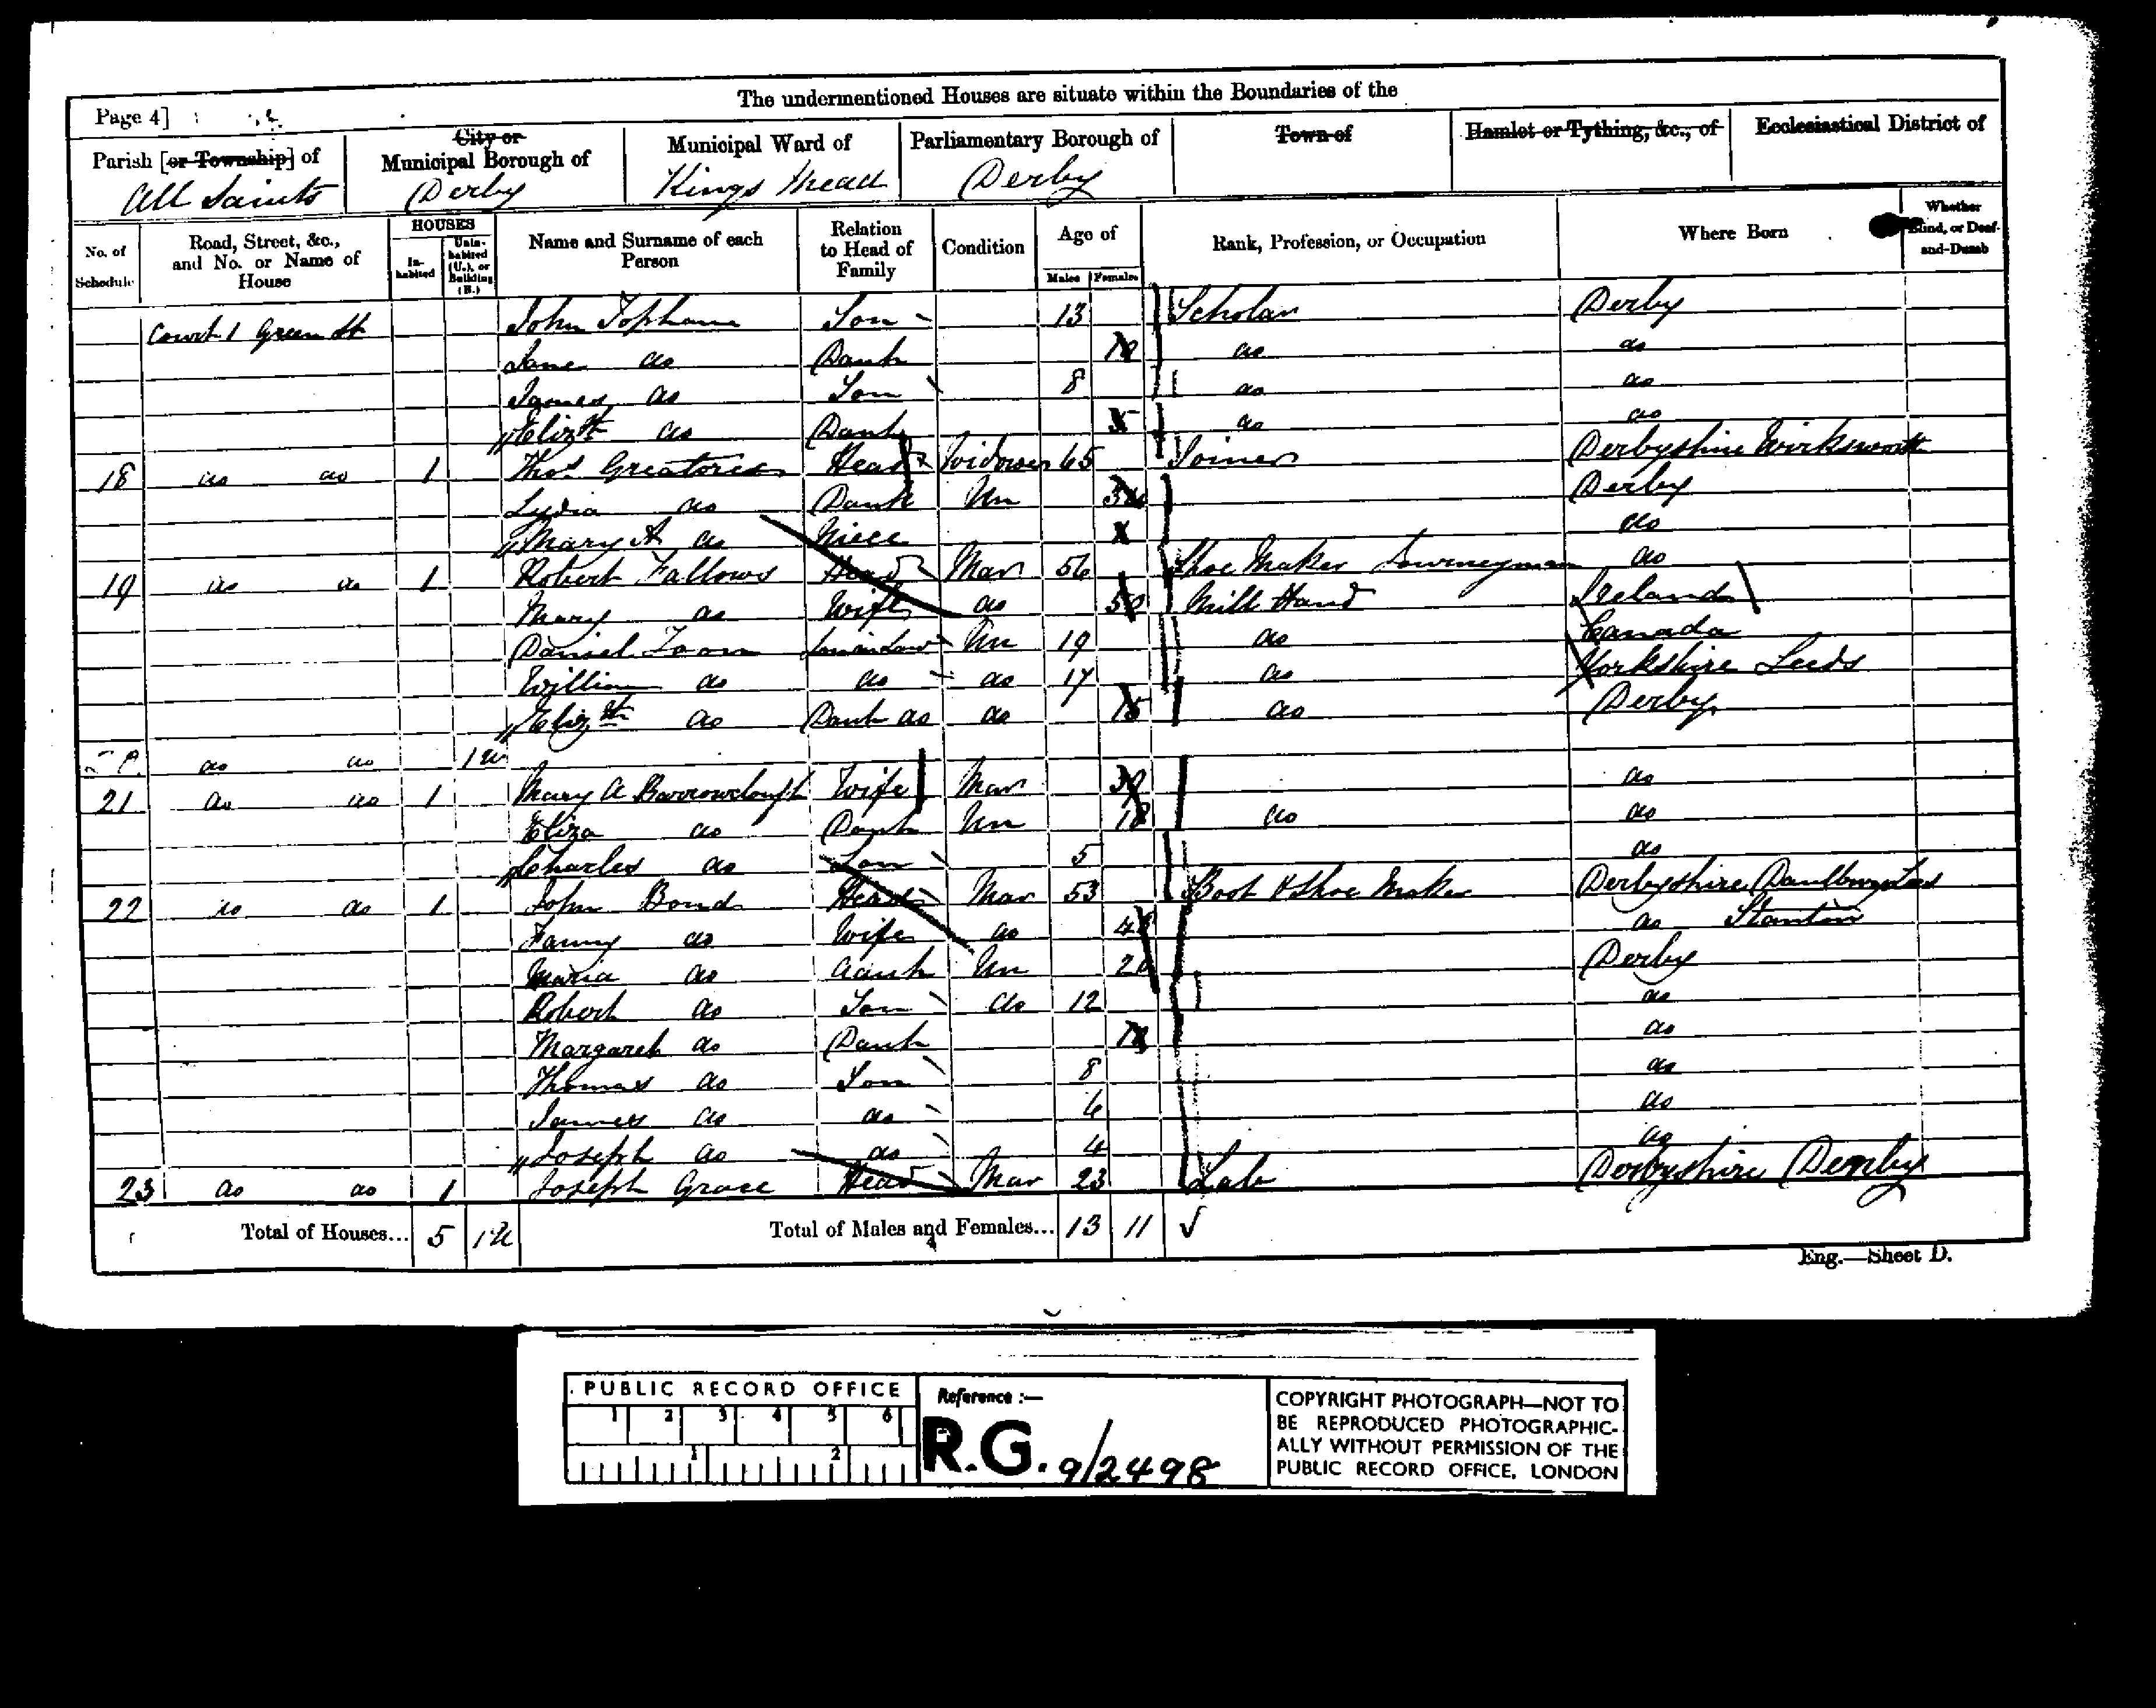 The undermentioned Houses are situate within the Boundaries of the
Page 4]
Parish [or Township] of
City or Municipal Borough of
Municipal Ward of
Parliamentary Borough of
Town of
Hamlet or Tything, &c., of
Ecclesiastical District of
All Saints Derby Kings Mead Derby
No. of Schedule
Road, Street, &c., and No. or Name of House
HOUSES
In-habited
Unin-habited (U.), or Building (B.)
Name and Surname of each Person
Relation to Head of Family
Condition
Age of
Males Females
Rank, Profession, or Occupation
Where Born
Whether Blind, or Deaf-and-Dumb
Court 1 Green St John Topham Son 13 Scholar Derby
Jane do Daur 10 do do
James do Son 8 do do
Elizth do Daur 5 do do
18 do do 1 Thos Greatorex Head Widower 65 Joiner Derbyshire Wirksworth
Lydia do Daur Un Derby
Mary A do Niece do
19 do do 1 Robert Fallows Head Mar 56 Shoe Maker Journeyman do
Mary do Wife do 50 Mill Hand Ireland
Daniel Toon Son in Law Un 19 do Canada
William do do do 17 do Yorkshire Leeds
Elizth do Daur do do 15 do Derby
do do 1 U
21 do do 1 Mary A Barrowclough Wife Mar 39 do
Eliza do Daur Un 18 do do
Charles do Son 5 do
22 do do 1 John Bond Head Mar 53 Boot & Shoe Maker Derbyshire
Fanny do Wife do 48 do Stanton
Maria do Daur Un 20 Derby
Robert do Son do 12 do
Margaret do Daur 10 do
Thomas do Son 8 do
James do do 6 do
Joseph do do 4 do
23 do do 1 Joseph Grace Head Mar 23 Lab Derbyshire Denby
Total of Houses... 5 1 U Total of Males and Females... 13 11
Eng.—Sheet D.
PUBLIC RECORD OFFICE
1 2 3 4 5 6
1 2
Reference :—
R.G. 9/2498
COPYRIGHT PHOTOGRAPH—NOT TO
BE REPRODUCED PHOTOGRAPHIC-
ALLY WITHOUT PERMISSION OF THE
PUBLIC RECORD OFFICE, LONDON